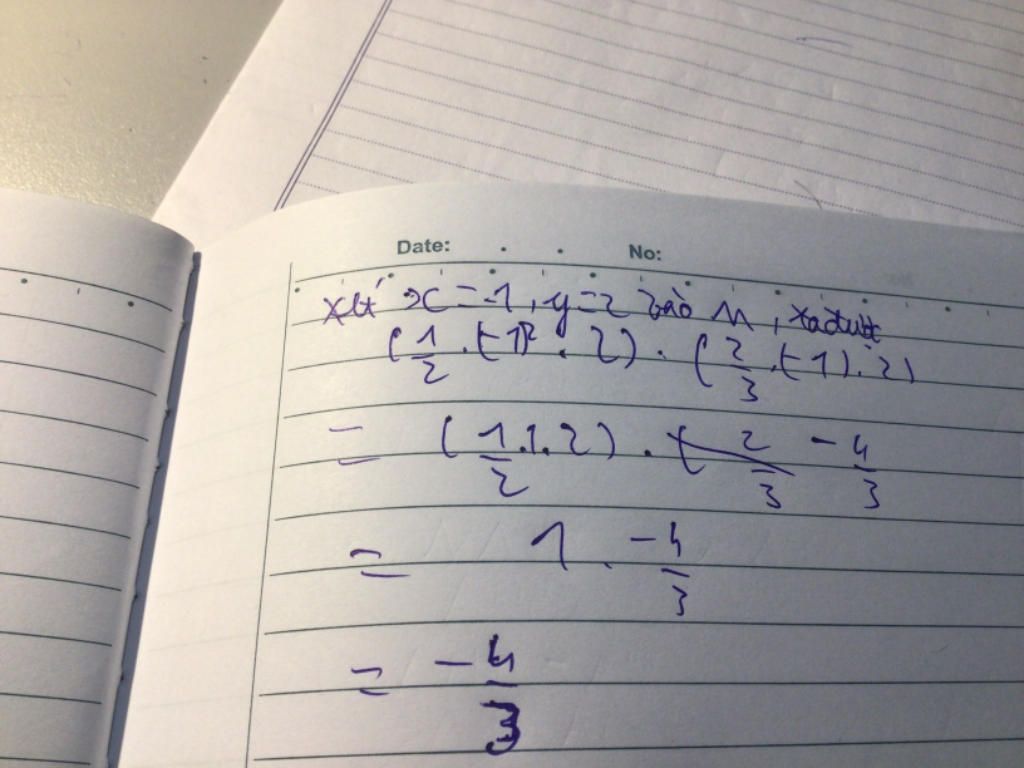 Date: No:
xét x = -1, y = 2 vào M, ta được
(1/2 . (-1)² . 2) . (2/3 . (-1) . 2)
= (1/2 . 1 . 2) . -4/3
= 1 . -4/3
= -4/3